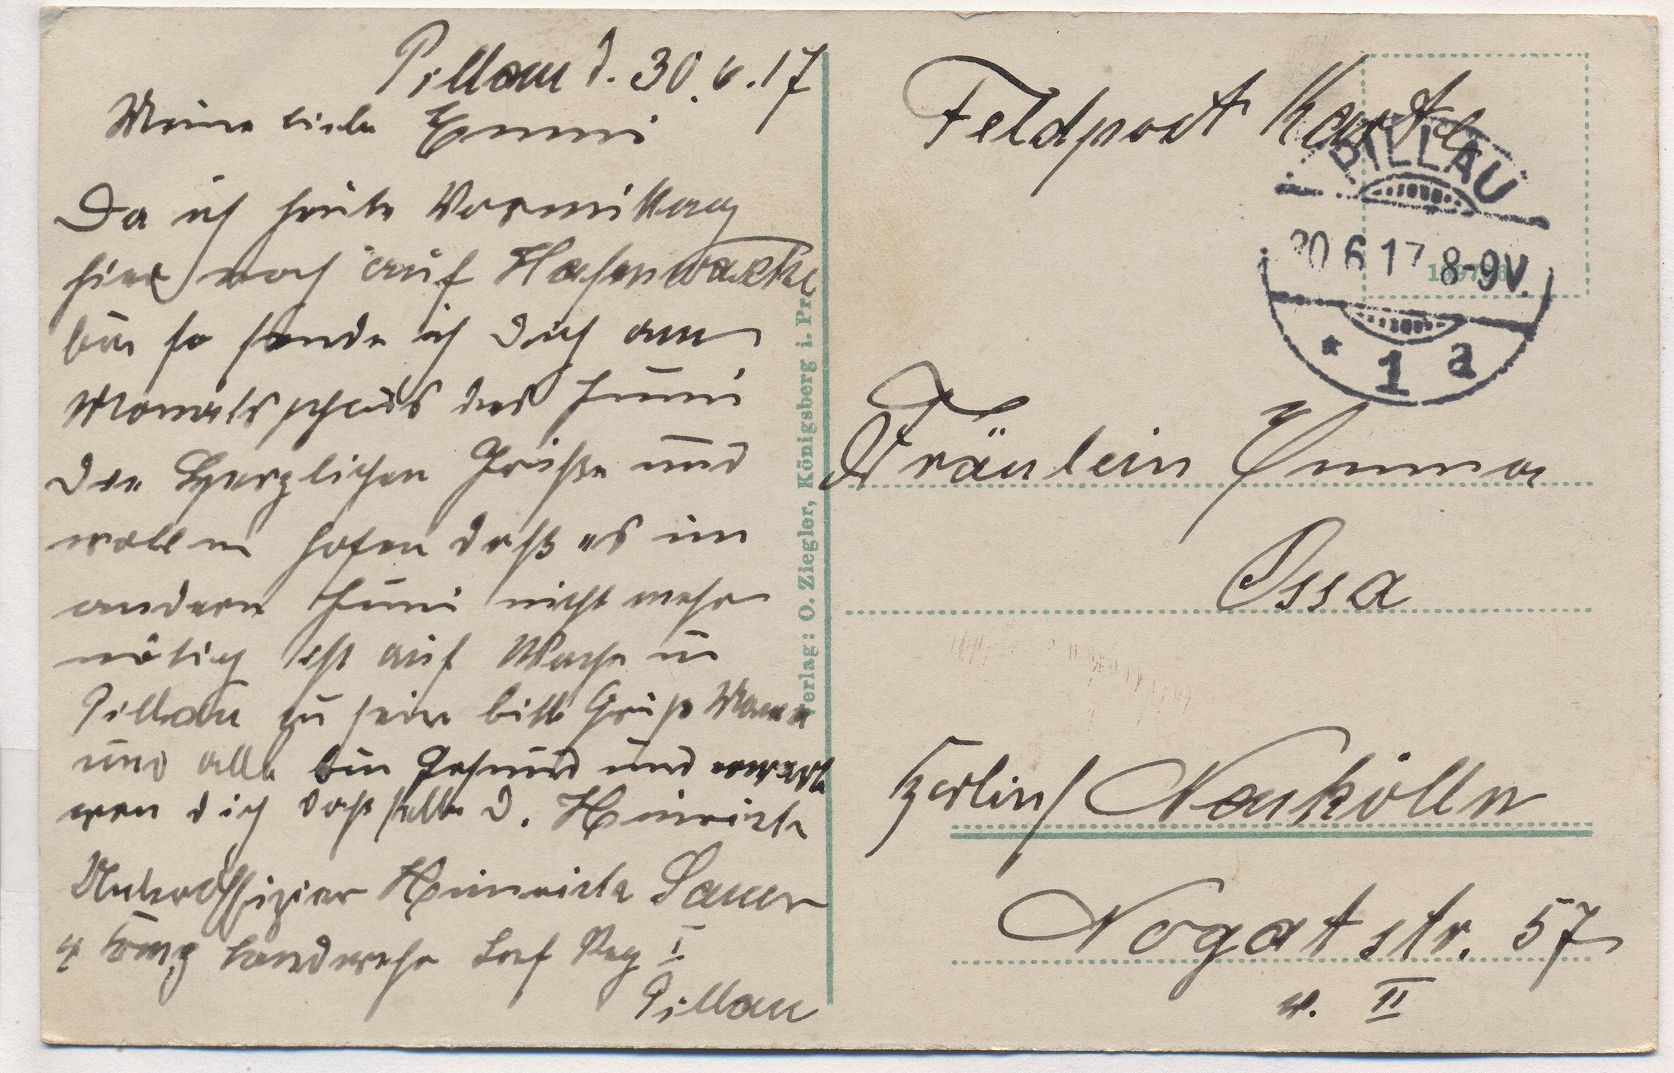 Pillau d. 30.6.17
Meine liebe Emmi
Da ich heute Vormittag
hier noch auf Hafenwache
bin so sende ich dich am
Monatsschluß des Juni
die Herzlichen Grüße und
wollen hofen daß es im
andern Juni nicht mehr
nötig ist auf Wache in
Pillau zu sein bitte Grüße Mama
und alle bin Gesund und
von dich daß selbe D. Heinrich
Unteroffizier Heinrich Sauer
4 Komp Landwehr Inf Reg I
Pillau
Verlag: O. Ziegler, Königsberg i. Pr.
Feldpost Karte
PILLAU
30 6 17 8-9V.
* 1 a
Fräulein Emma
Ossa
Berlin / Neukölln
Nogatstr. 57
v. II